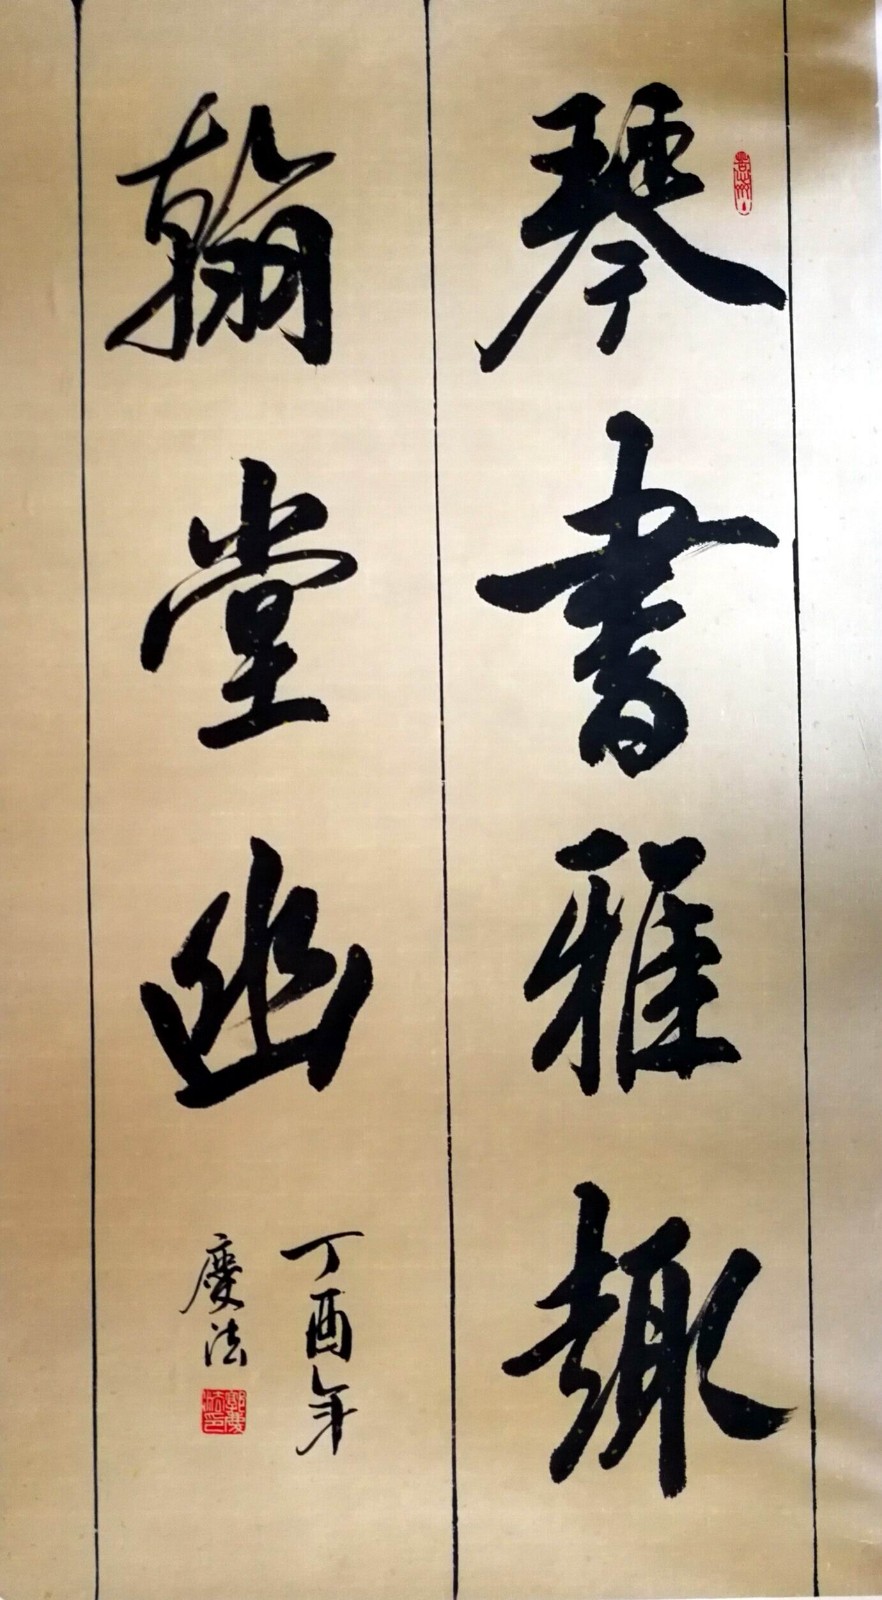 琴書雅趣
翰堂幽
丁酉年
慶法